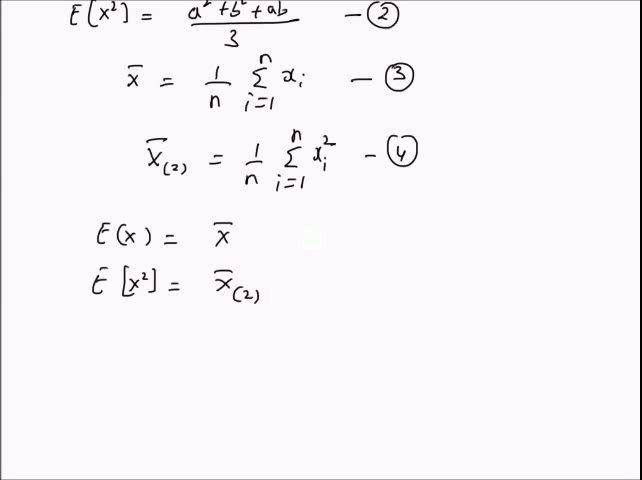 E[x²] = a² + b² + ab / 3 — ②
x̄ = 1/n ∑ᵢ₌₁ⁿ xᵢ — ③
x̄₍₂₎ = 1/n ∑ᵢ₌₁ⁿ xᵢ² — ④
E(x) = x̄
E[x²] = x̄₍₂₎